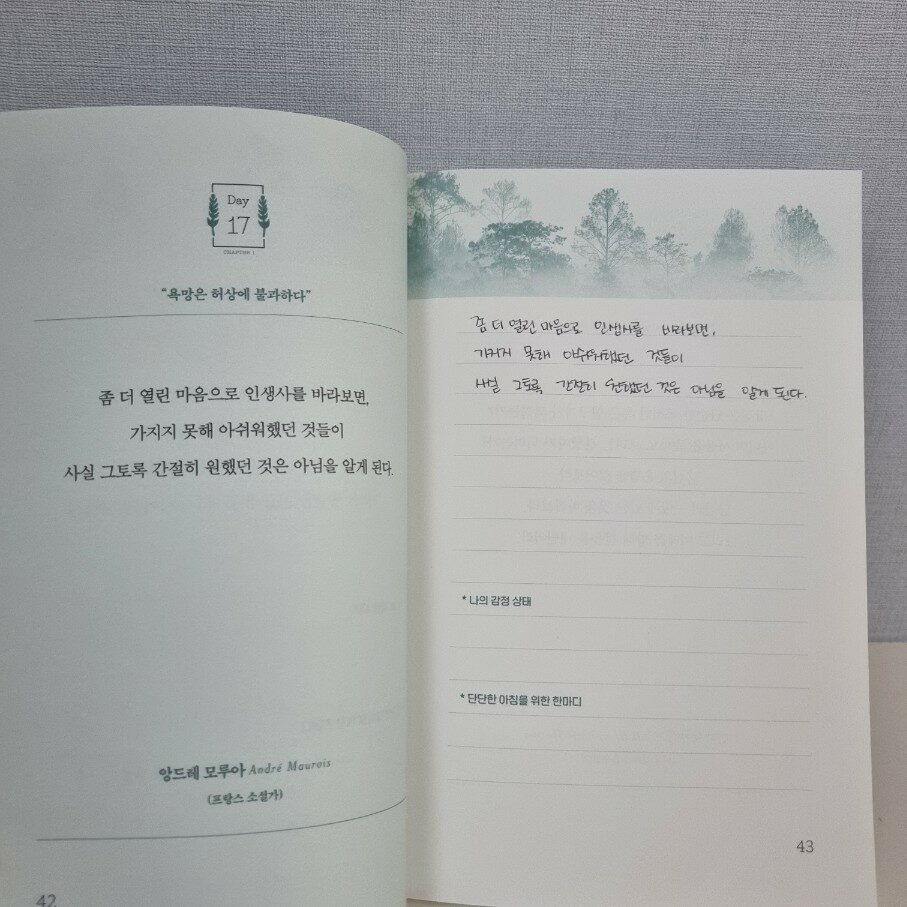 Day
17
CHAPTER 1
“욕망은 허상에 불과하다”
좀 더 열린 마음으로 인생사를 바라보면,
가지지 못해 아쉬워했던 것들이
사실 그토록 간절히 원했던 것은 아님을 알게 된다.
앙드레 모루아 André Maurois
(프랑스 소설가)
42
좀 더 열린 마음으로 인생사를 바라보면,
가지지 못해 아쉬워했던 것들이
사실 그토록 간절히 원했던 것은 아님을 알게 된다.
* 나의 감정 상태
* 단단한 아침을 위한 한마디
43